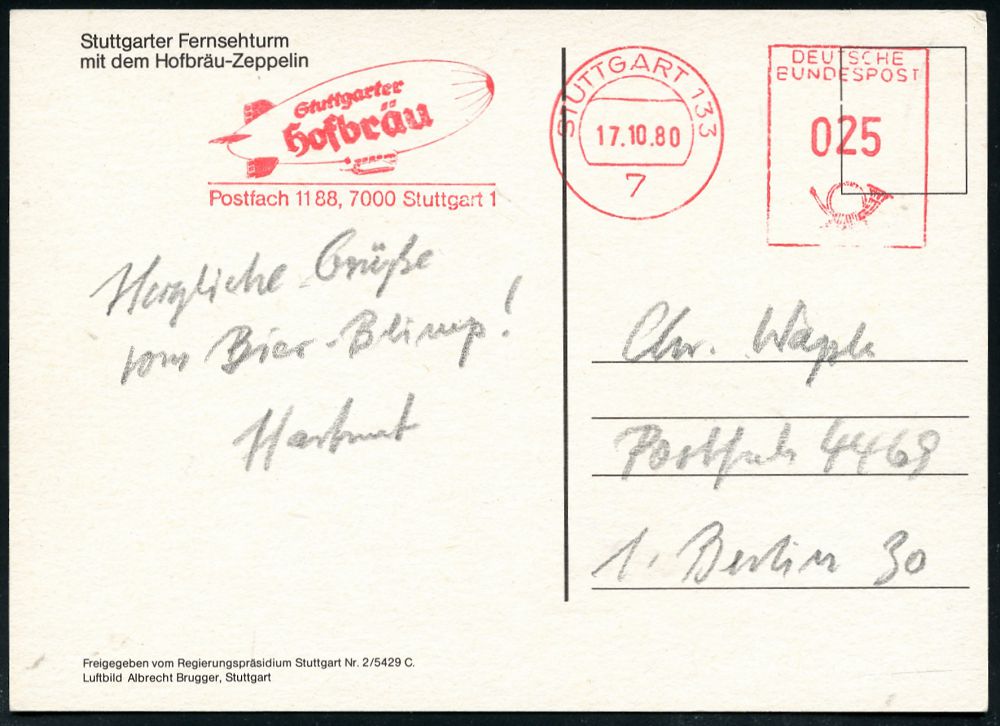 Stuttgarter Fernsehturm
mit dem Hofbräu-Zeppelin
Stuttgarter
Hofbräu
Postfach 1188, 7000 Stuttgart 1
STUTTGART 133
17.10.80
7
DEUTSCHE
BUNDESPOST
025
Herzliche Grüße
vom Bier-Blimp!
Hartmut
Chr.
Postfach 4469
1. Berlin 30
Freigegeben vom Regierungspräsidium Stuttgart Nr. 2/5429 C.
Luftbild Albrecht Brugger, Stuttgart